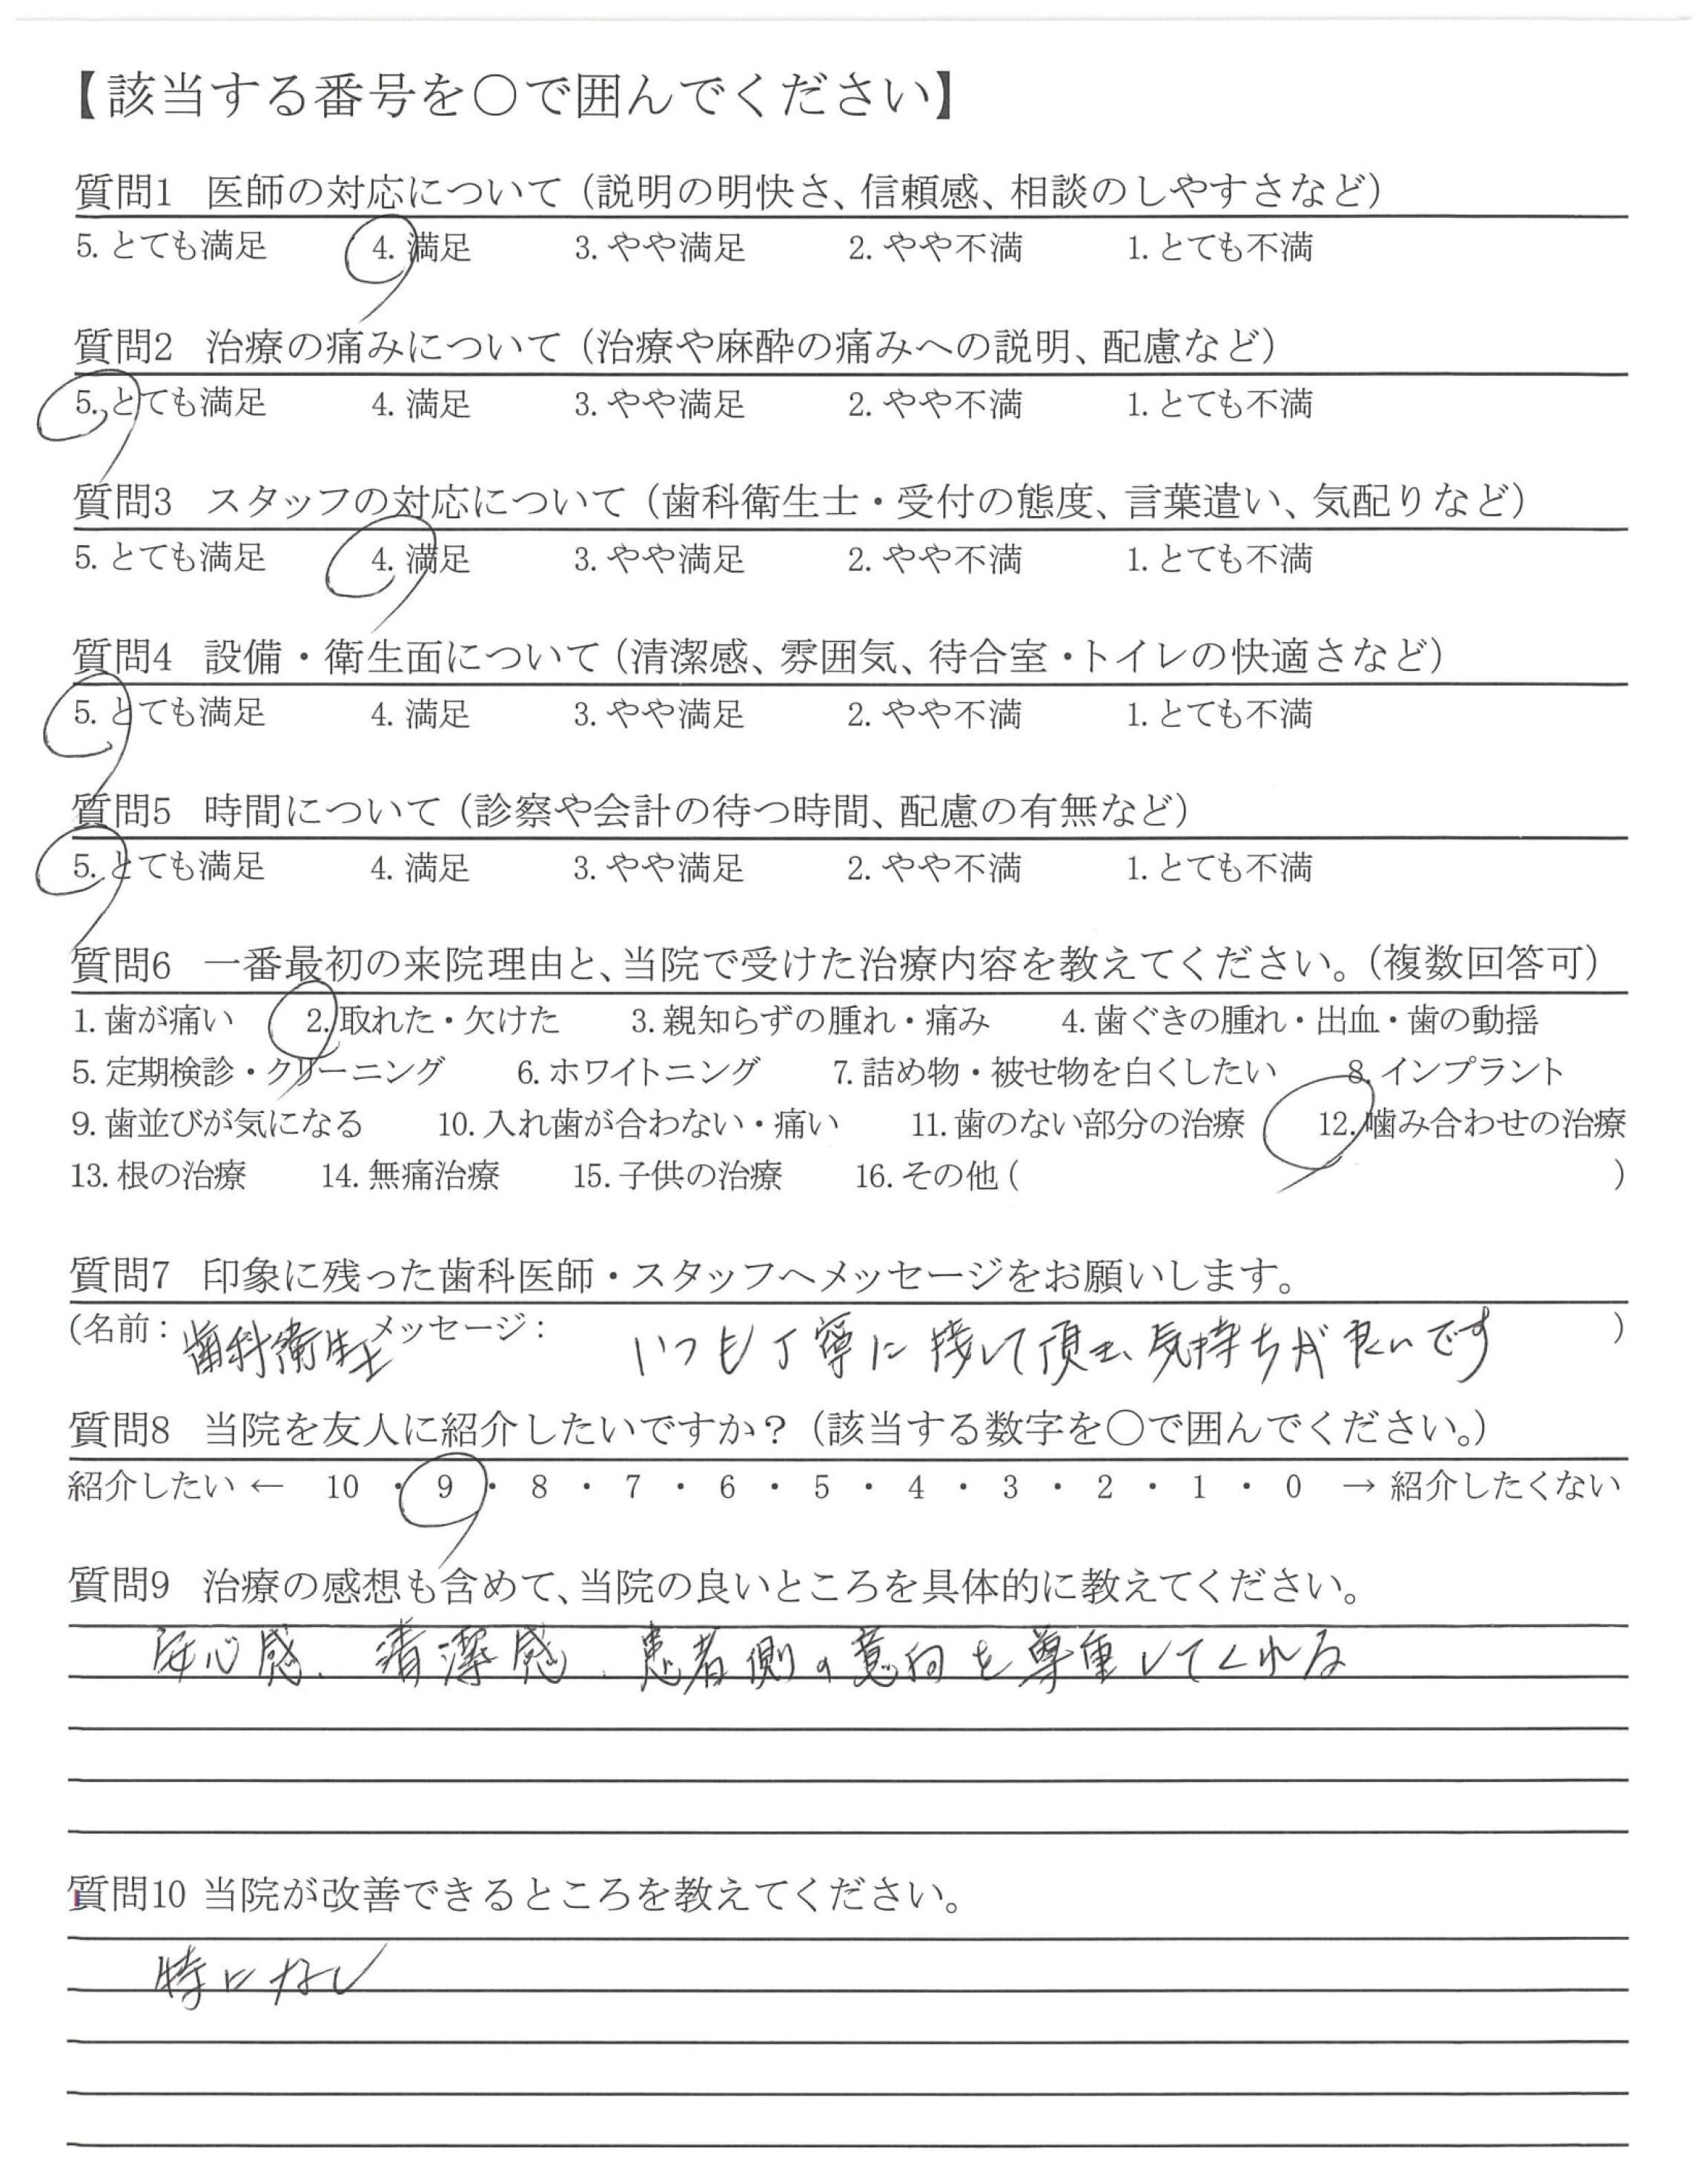 【該当する番号を○で囲んでください】
質問1 医師の対応について（説明の明快さ、信頼感、相談のしやすさなど）
5. とても満足 4. 満足 3. やや満足 2. やや不満 1. とても不満
質問2 治療の痛みについて（治療や麻酔の痛みへの説明、配慮など）
5. とても満足 4. 満足 3. やや満足 2. やや不満 1. とても不満
質問3 スタッフの対応について（歯科衛生士・受付の態度、言葉遣い、気配りなど）
5. とても満足 4. 満足 3. やや満足 2. やや不満 1. とても不満
質問4 設備・衛生面について（清潔感、雰囲気、待合室・トイレの快適さなど）
5. とても満足 4. 満足 3. やや満足 2. やや不満 1. とても不満
質問5 時間について（診察や会計の待つ時間、配慮の有無など）
5. とても満足 4. 満足 3. やや満足 2. やや不満 1. とても不満
質問6 一番最初の来院理由と、当院で受けた治療内容を教えてください。（複数回答可）
1. 歯が痛い 2. 取れた・欠けた 3. 親知らずの腫れ・痛み 4. 歯ぐきの腫れ・出血・歯の動揺
5. 定期検診・クリーニング 6. ホワイトニング 7. 詰め物・被せ物を白くしたい 8. インプラント
9. 歯並びが気になる 10. 入れ歯が合わない・痛い 11. 歯のない部分の治療 12. 噛み合わせの治療
13. 根の治療 14. 無痛治療 15. 子供の治療 16. その他 ( )
質問7 印象に残った歯科医師・スタッフへメッセージをお願いします。
(名前： 歯科衛生士 メッセージ： いつも丁寧に接して頂き、気持ちが良いです )
質問8 当院を友人に紹介したいですか？（該当する数字を○で囲んでください。）
紹介したい ← 10 ・ 9 ・ 8 ・ 7 ・ 6 ・ 5 ・ 4 ・ 3 ・ 2 ・ 1 ・ 0 → 紹介したくない
質問9 治療の感想も含めて、当院の良いところを具体的に教えてください。
安心感、清潔感、患者側の意向を尊重してくれる
質問10 当院が改善できるところを教えてください。
特になし